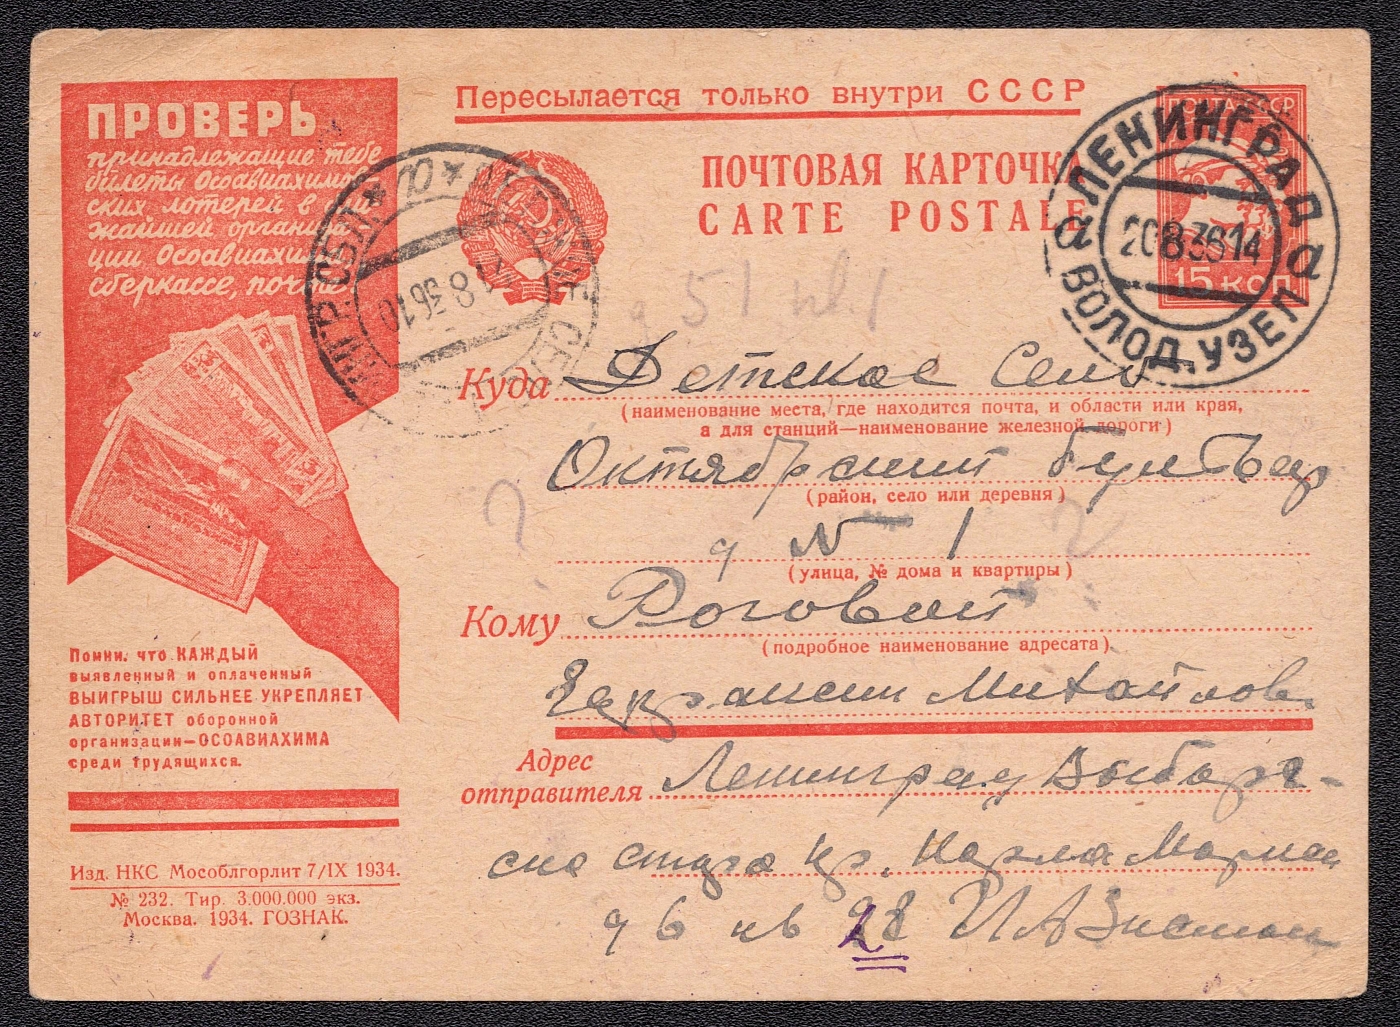 ПРОВЕРЬ
принадлежащие тебе
билеты Осоавиахимов-
ских лотерей в
жайшей организа-
ции Осоавиахима
сберкассе, почте
Помни, что КАЖДЫЙ
выявленный и оплаченный
ВЫИГРЫШ СИЛЬНЕЕ УКРЕПЛЯЕТ
АВТОРИТЕТ оборонной
организации—ОСОАВИАХИМА
среди трудящихся.
Изд. НКС Мособлгорлит 7/IX 1934.
№ 232. Тир. 3.000.000 экз.
Москва. 1934. ГОЗНАК.
Пересылается только внутри СССР
ПОЧТОВАЯ КАРТОЧКА
CARTE POSTALE
ПОЧТА СССР
15 КОП.
ЛЕНИНГРАД
а 2083614 а
ВОЛОД. УЗЕЛ
51
Куда Детское Село
(наименование места, где находится почта, и области или края,
а для станций—наименование железной дороги)
Октябрьский бульвар
(район, село или деревня)
д № 1
(улица, № дома и квартиры)
Кому Роговой
(подробное наименование адресата)
Михайлов.
Адрес
отправителя Ленинград Выборг-
ская стор пр. Карла Маркса
д 6 кв